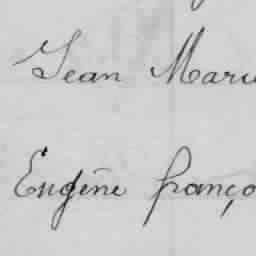 Jean Marie
Eugène franço